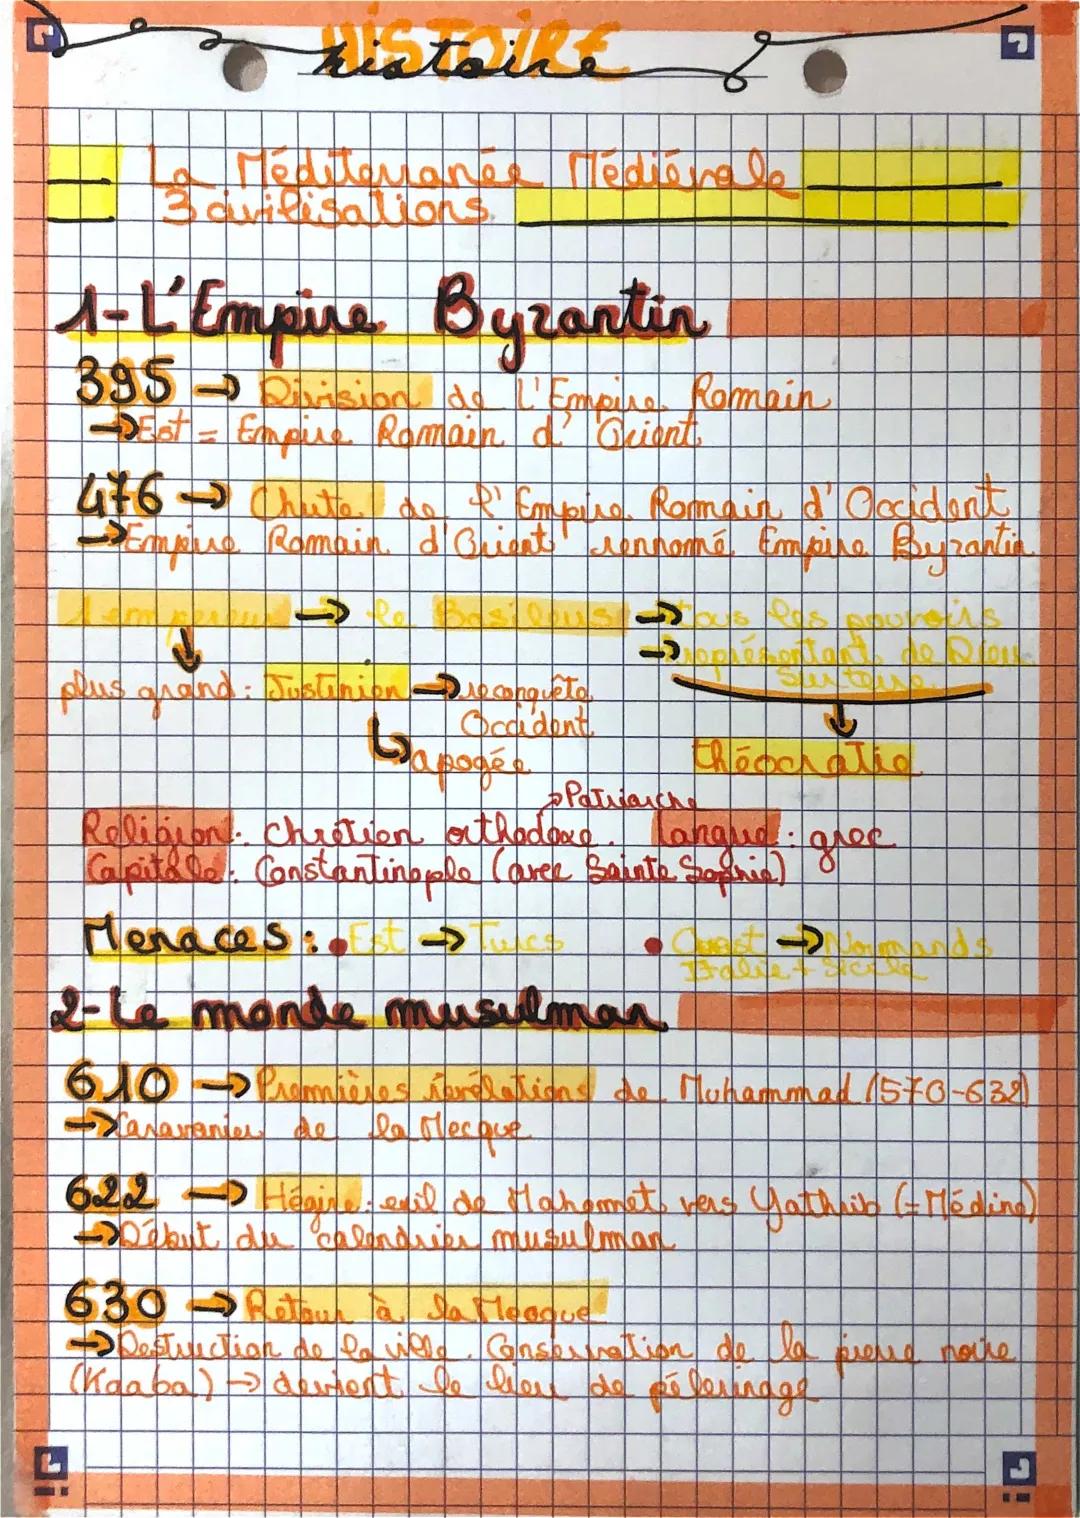 HISTOIRE
histoire
La Méditerranée Médiévale
3 civilisations
1-L'Empire Byzantin
395 → Division de l'Empire Romain
→ Est = Empire Romain d'Orient
476 → Chute de l'Empire Romain d'Occident
→ Empire Romain d'Orient rennomé Empire Byzantin
1 empereur → le Basileus → tous les pouvoirs
→ représentant de Dieu
sur terre
plus grand : Justinien → reconquête
Occident
↳ apogée
théocratie
→ Patriarche
Religion : Chrétien orthodoxe. Langue : grec
Capitale : Constantinople (avec Sainte Sophie)
Menaces : • Est → Turcs • Ouest → Normands
Italie + Sicile
2-Le monde musulman
610 → Premmières révélations de Muhammad (570-632)
→ Caravanier de la Mecque
622 → Hégire : exil de Mahomet vers Yathrib (= Médine)
→ Début du calendrier musulman
630 → Retour à la Mecque
→ Destruction de la ville. Conservation de la pierre noire
(Kaaba) → devient le lieu de pélerinage